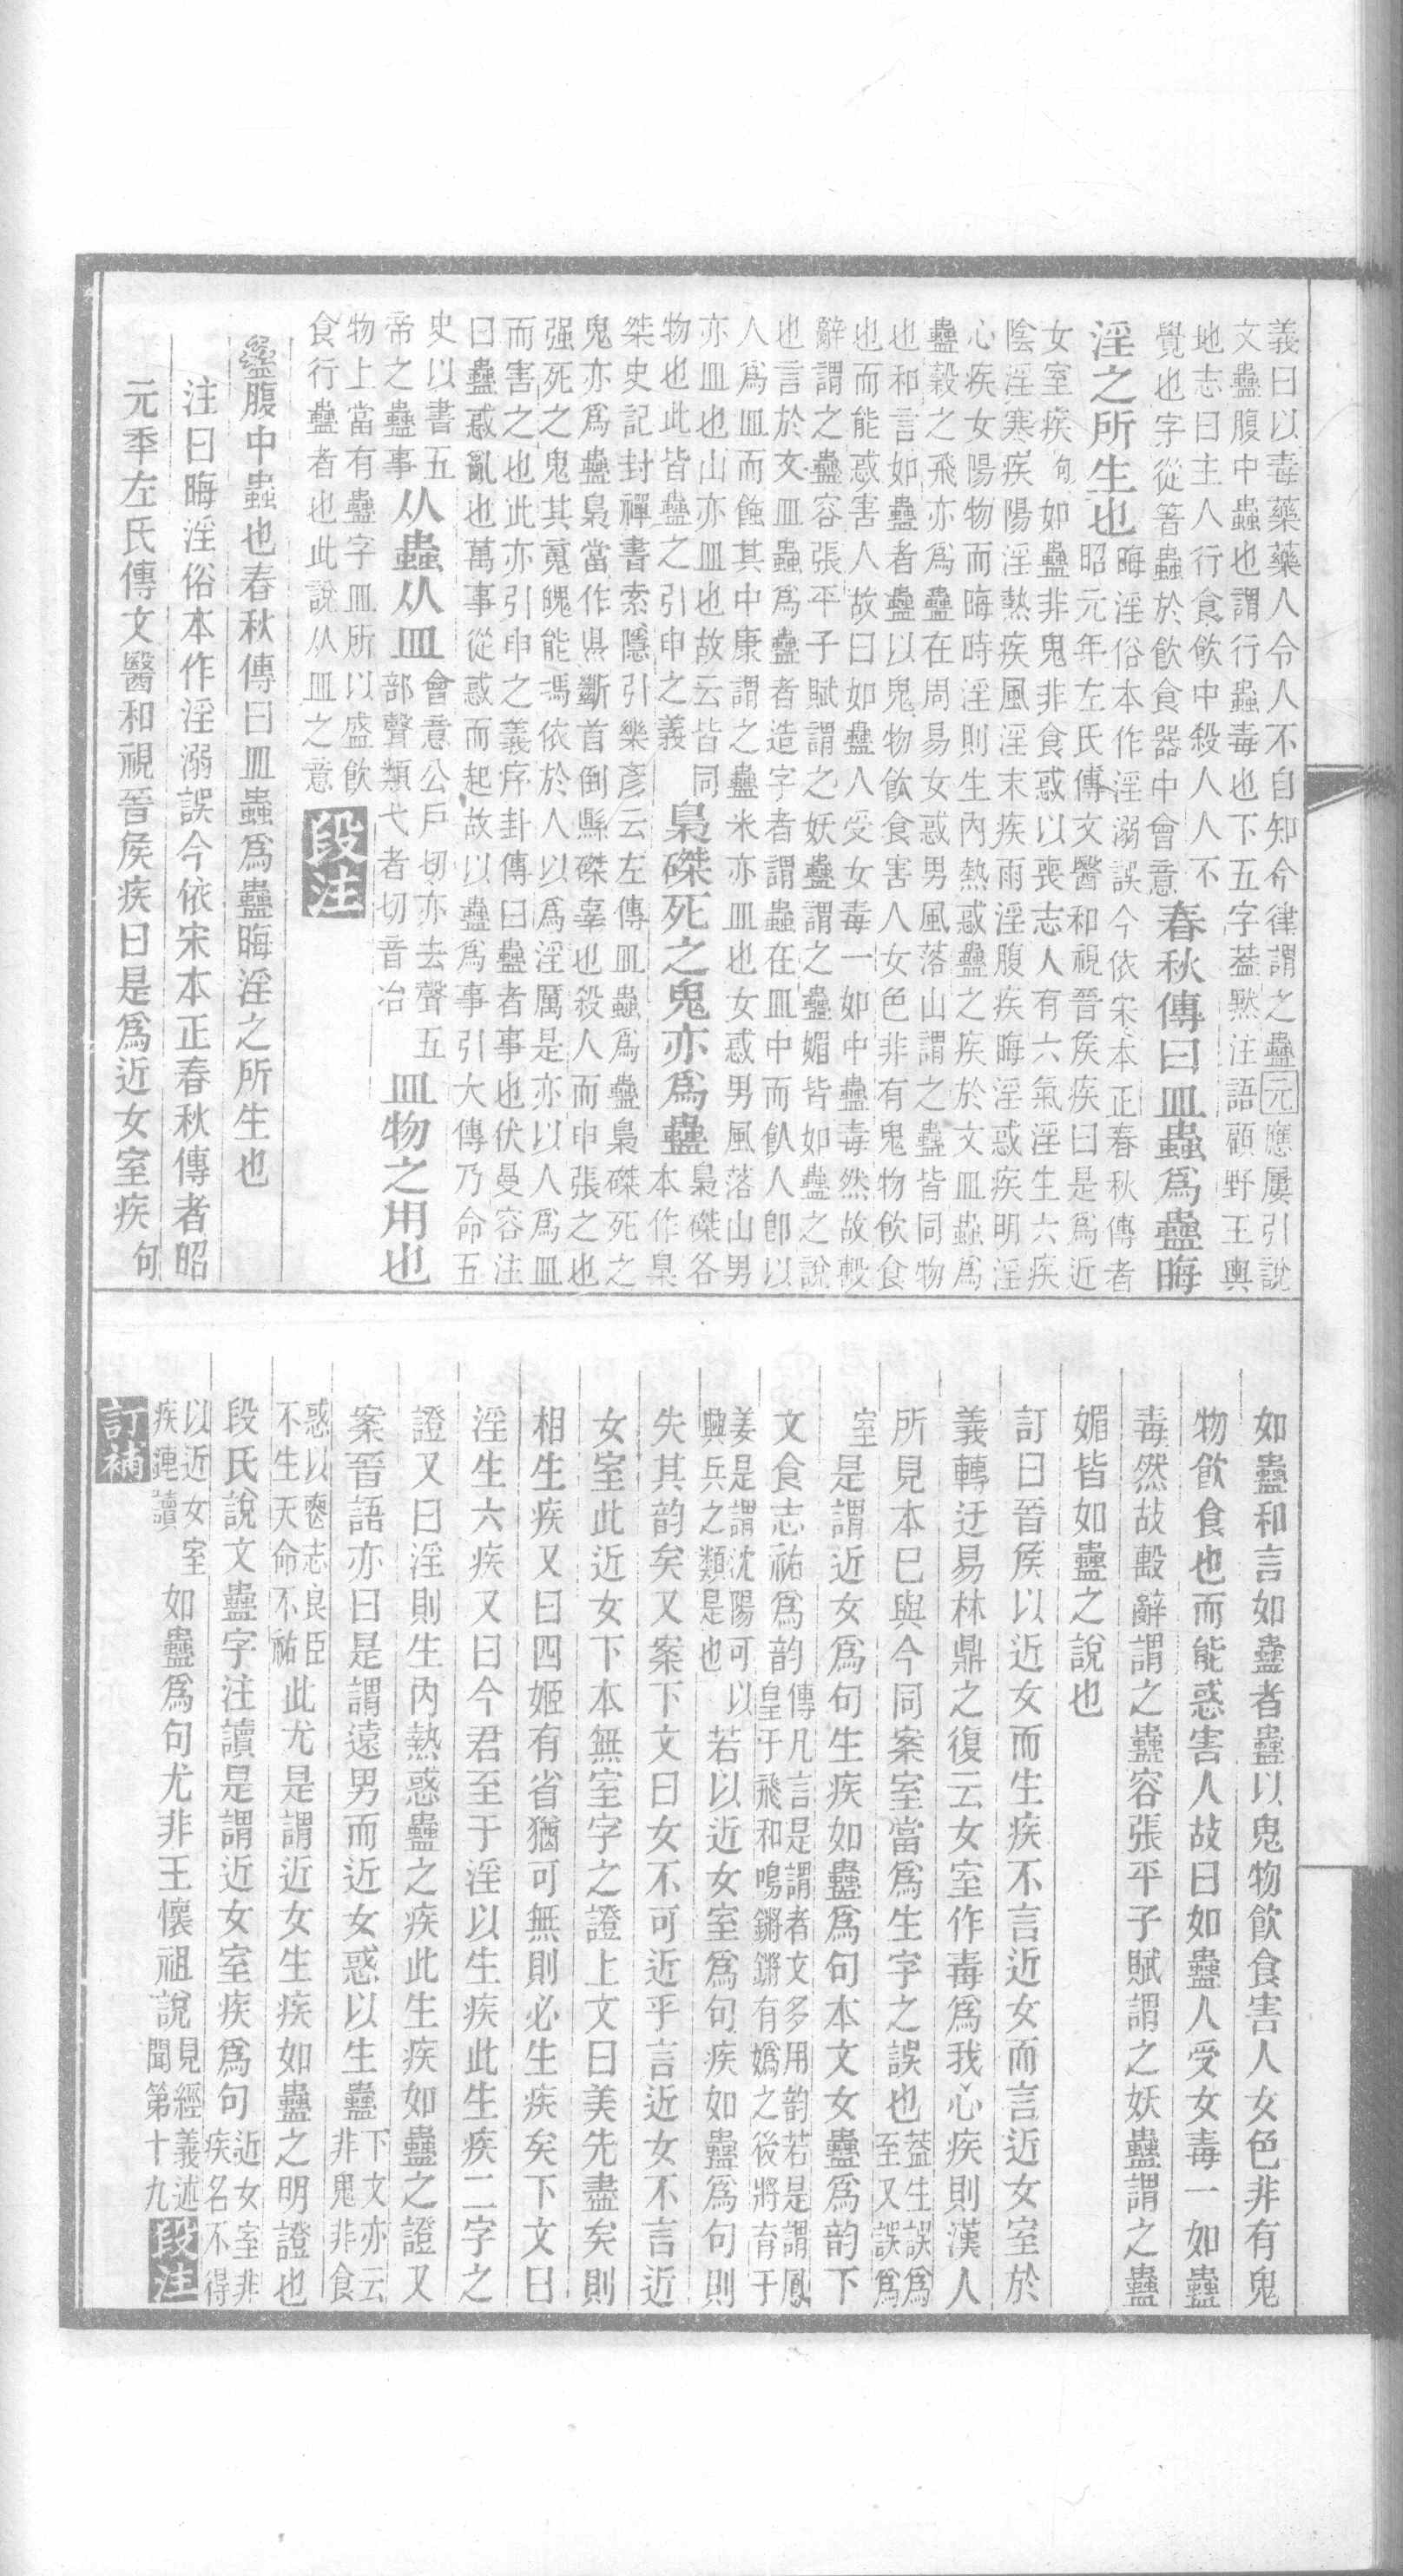 義曰以毒藥藥人令人不自知今律謂之蠱元應屢引說
文蠱腹中蟲也謂行蟲毒也下五字葢㸃注語顧野王輿
地志曰主人行食飲中殺人人不
覺也字從箸蟲於飲食器中會意春秋傳曰皿蟲爲蠱晦
淫之所生也晦淫俗本作淫溺誤今依宋本正春秋傳者
昭元年左氏傳文醫和視晉矦疾曰是爲近
女室疾句如蠱非鬼非食惑以喪志人有六氣淫生六疾
陰淫寒疾陽淫熱疾風淫末疾雨淫腹疾晦淫惑疾明淫
心疾女陽物而晦時淫則生內熱惑蠱之疾於文皿蟲爲
蠱穀之飛亦爲蠱在周易女惑男風落山謂之蠱皆同物
也和言如蠱者蠱以鬼物飲食害人女色非有鬼物飲食
也而能惑害人故曰如蠱人受女毒一如中蠱毒然故毄
辭謂之蠱容張平子賦謂之妖蠱謂之蠱媚皆如蠱之說
也言於文皿蟲爲蠱者造字者謂蟲在皿中而飤人卽以
人爲皿而蝕其中康謂之蠱米亦皿也女惑男風落山男
亦皿也山亦皿也故云皆同
物也此皆蠱之引申之義梟磔死之鬼亦爲蠱梟磔各
本作㚖
桀史記封禪書索隱引樂彥云左傳皿蟲爲蠱梟磔死之
鬼亦爲蠱梟當作㬎斷首倒縣磔辜也殺人而申張之也
强死之鬼其䰟魄能馮依於人以爲淫厲是亦以人爲皿
而害之也此亦引申之義序卦傳曰蠱者事也伏曼容注
曰蠱惑亂也萬事從惑而起故以蠱爲事引大傳乃命五
史以書五
帝之蠱事从蟲从皿會意公戶切亦去聲五
部聲類弋者切音冶皿物之用也
物上當有蠱字皿所以盛飲
食行蠱者也此說从皿之意段注
蠱腹中蟲也春秋傳曰皿蟲爲蠱晦淫之所生也
注曰晦淫俗本作淫溺誤今依宋本正春秋傳者昭
元季左氏傳文醫和視晉矦疾曰是爲近女室疾句
如蠱和言如蠱者蠱以鬼物飲食害人女色非有鬼
物飲食也而能惑害人故曰如蠱人受女毒一如蠱
毒然故毄辭謂之蠱容張平子賦謂之妖蠱謂之蠱
媚皆如蠱之說也
訂曰晉矦以近女而生疾不言近女而言近女室於
義轉迂易林鼎之復云女室作毒爲我心疾則漢人
所見本已與今同案室當爲生字之誤也葢生誤爲
至又誤爲
室是謂近女爲句生疾如蠱爲句本文女蠱爲韵下
文食志祐爲韵傳凡言是謂者文多用韵若是謂鳳
皇于飛和鳴鏘鏘有嬀之後將育于
姜是謂沈陽可以
興兵之類是也若以近女室爲句疾如蠱爲句則
失其韵矣又案下文曰女不可近乎言近女不言近
女室此近女下本無室字之證上文曰美先盡矣則
相生疾又曰四姬有省猶可無則必生疾矣下文曰
淫生六疾又曰今君至于淫以生疾此生疾二字之
證又曰淫則生內熱惑蠱之疾此生疾如蠱之證又
案晉語亦曰是謂遠男而近女惑以生蠱下文亦云
非鬼非食
惑以喪志良臣
不生天命不祐此尤是謂近女生疾如蠱之明證也
段氏說文蠱字注讀是謂近女室疾爲句近女室非
疾名不得
以近女室
疾連讀如蠱爲句尤非王懷祖說見經義述
聞第十九段注
訂補